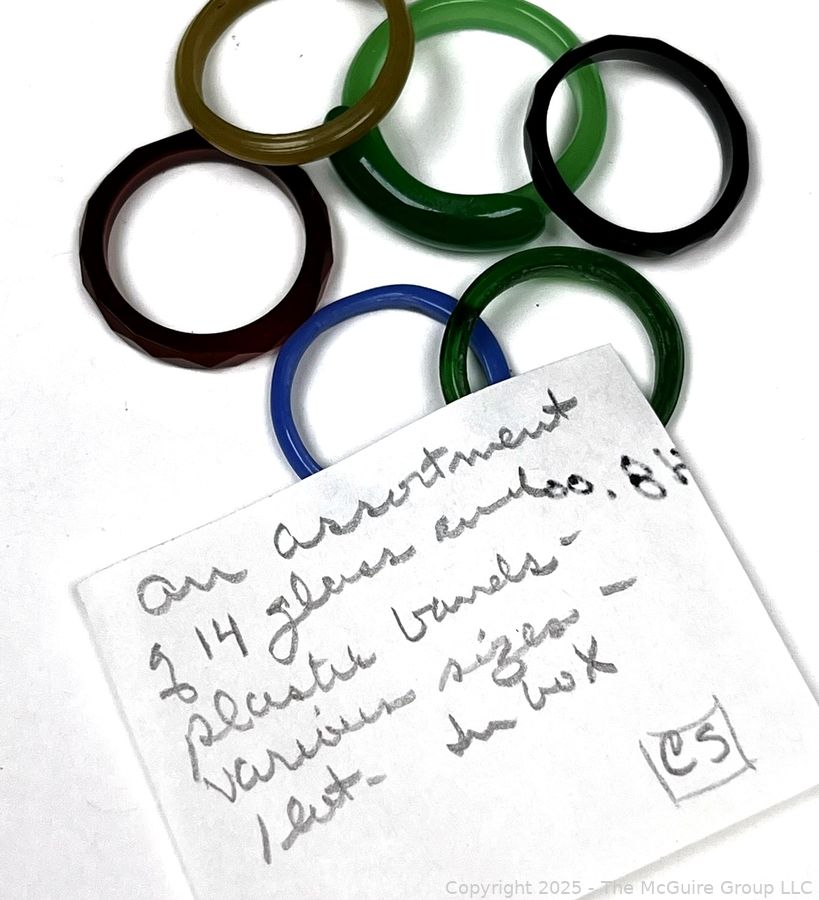 an assortment
of 14 glass and
plastic bands -
various sizes -
1 lot. In box
CS
Copyright 2025 - The McGuire Group LLC